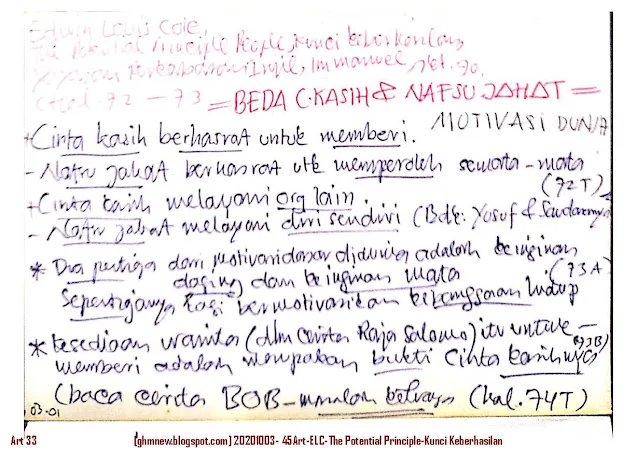 Edwin Louis Cole,
The Potential Principle People, Kunci Keberhasilan,
Yayasan Pekabaran Injil, Immanuel, Jkt. 90.
(Hal. 72 - 73 = BEDA C.KASIH & NAFSU JAHAT =
MOTIVASI DUNIA
+ Cinta kasih berhasrat untuk memberi.
- Nafsu jahat berhasrat utk memperoleh semata-mata
(72T)
+ Cinta kasih melayani org lain.
- Nafsu jahat melayani diri sendiri (Bdk: Yusuf & Saudaranya
* Dua pertiga dari motivasi dasar didunia adalah keinginan
daging dan keinginan mata (73A)
Sepertiganya lagi bermotivasikan keangguan hidup
* Kesediaan wanita (dlm cerita Raja Salomo) itu untuk -
memberi adalah merupakan bukti Cinta kasihnya (73B)
(baca cerita BOB - keluarga (hal. 74T)
03-01
Art 33
[ghmnew.blogspot.com] 20201003- 45Art-ELC-The Potential Principle-Kunci Keberhasilan